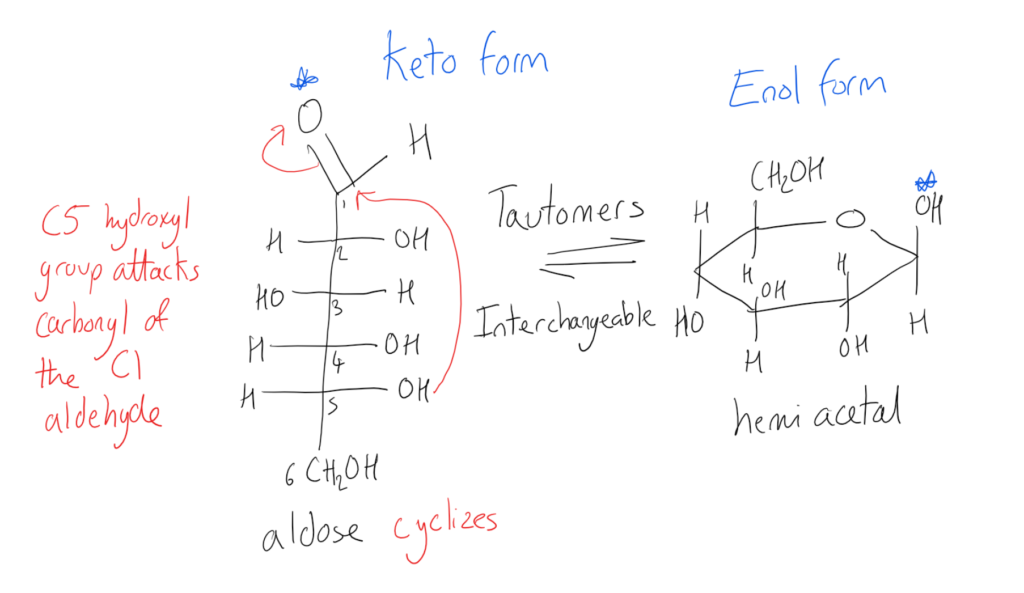 Keto form
Enol form
O
H
1
H OH
2
HO H
3
H OH
4
H OH
5
6 CH₂OH
aldose cyclizes
C5 hydroxyl
group attacks
carbonyl of
the C1
aldehyde
Tautomers
Interchangeable
CH₂OH
H O OH
H H
OH
HO H
H OH
hemi acetal